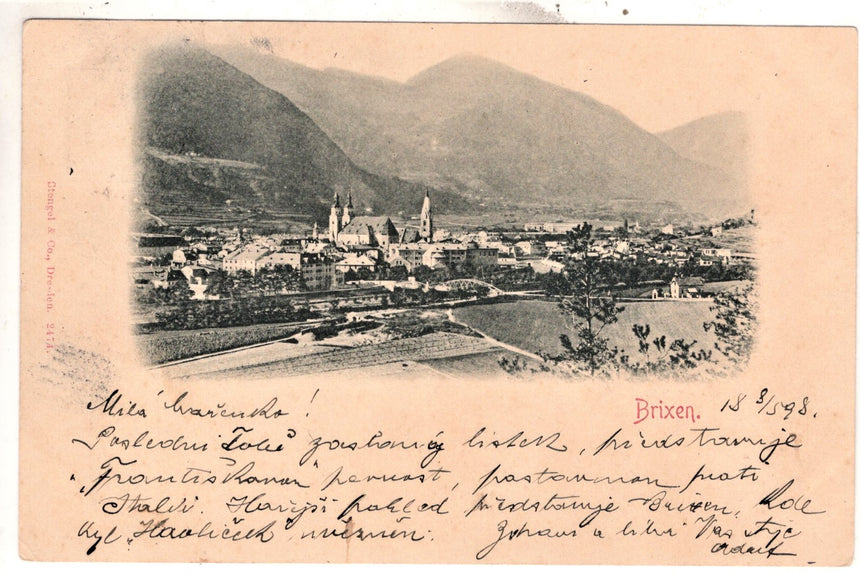 Stengel & Co., Dresden. 2474.
Brixen. 18 8/5 98.
Milá Mařenko!
Poslední Tobě zaslaný lístek, představuje
"Františkovou" pevnost, postavenou proti
Italii. Hořejší pohled představuje Brixen, kde
byl "Havlíček" uvězněn.
Zdraví a líbá Vás strýc
Adolf